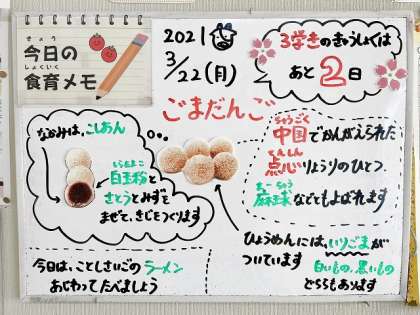 きょう
今日の
しょくいく
食育メモ
2021
3/22(月)
3学きのきゅうしょくは
あと2日
ごまだんご
なかみは、こしあん
しらたまこ
白玉粉と
さとうとみずを
まぜて、きじをつくります
ちゅうごく
中国でかんがえられた
てんしん
点心りょうりのひとつ
まーちゅう
麻球などともよばれます
ひょうめんには、いりごまが
ついています
白いもの、黒いもの
どちらもあります
今日は、ことしさいごのラーメン
あじわってたべましょう